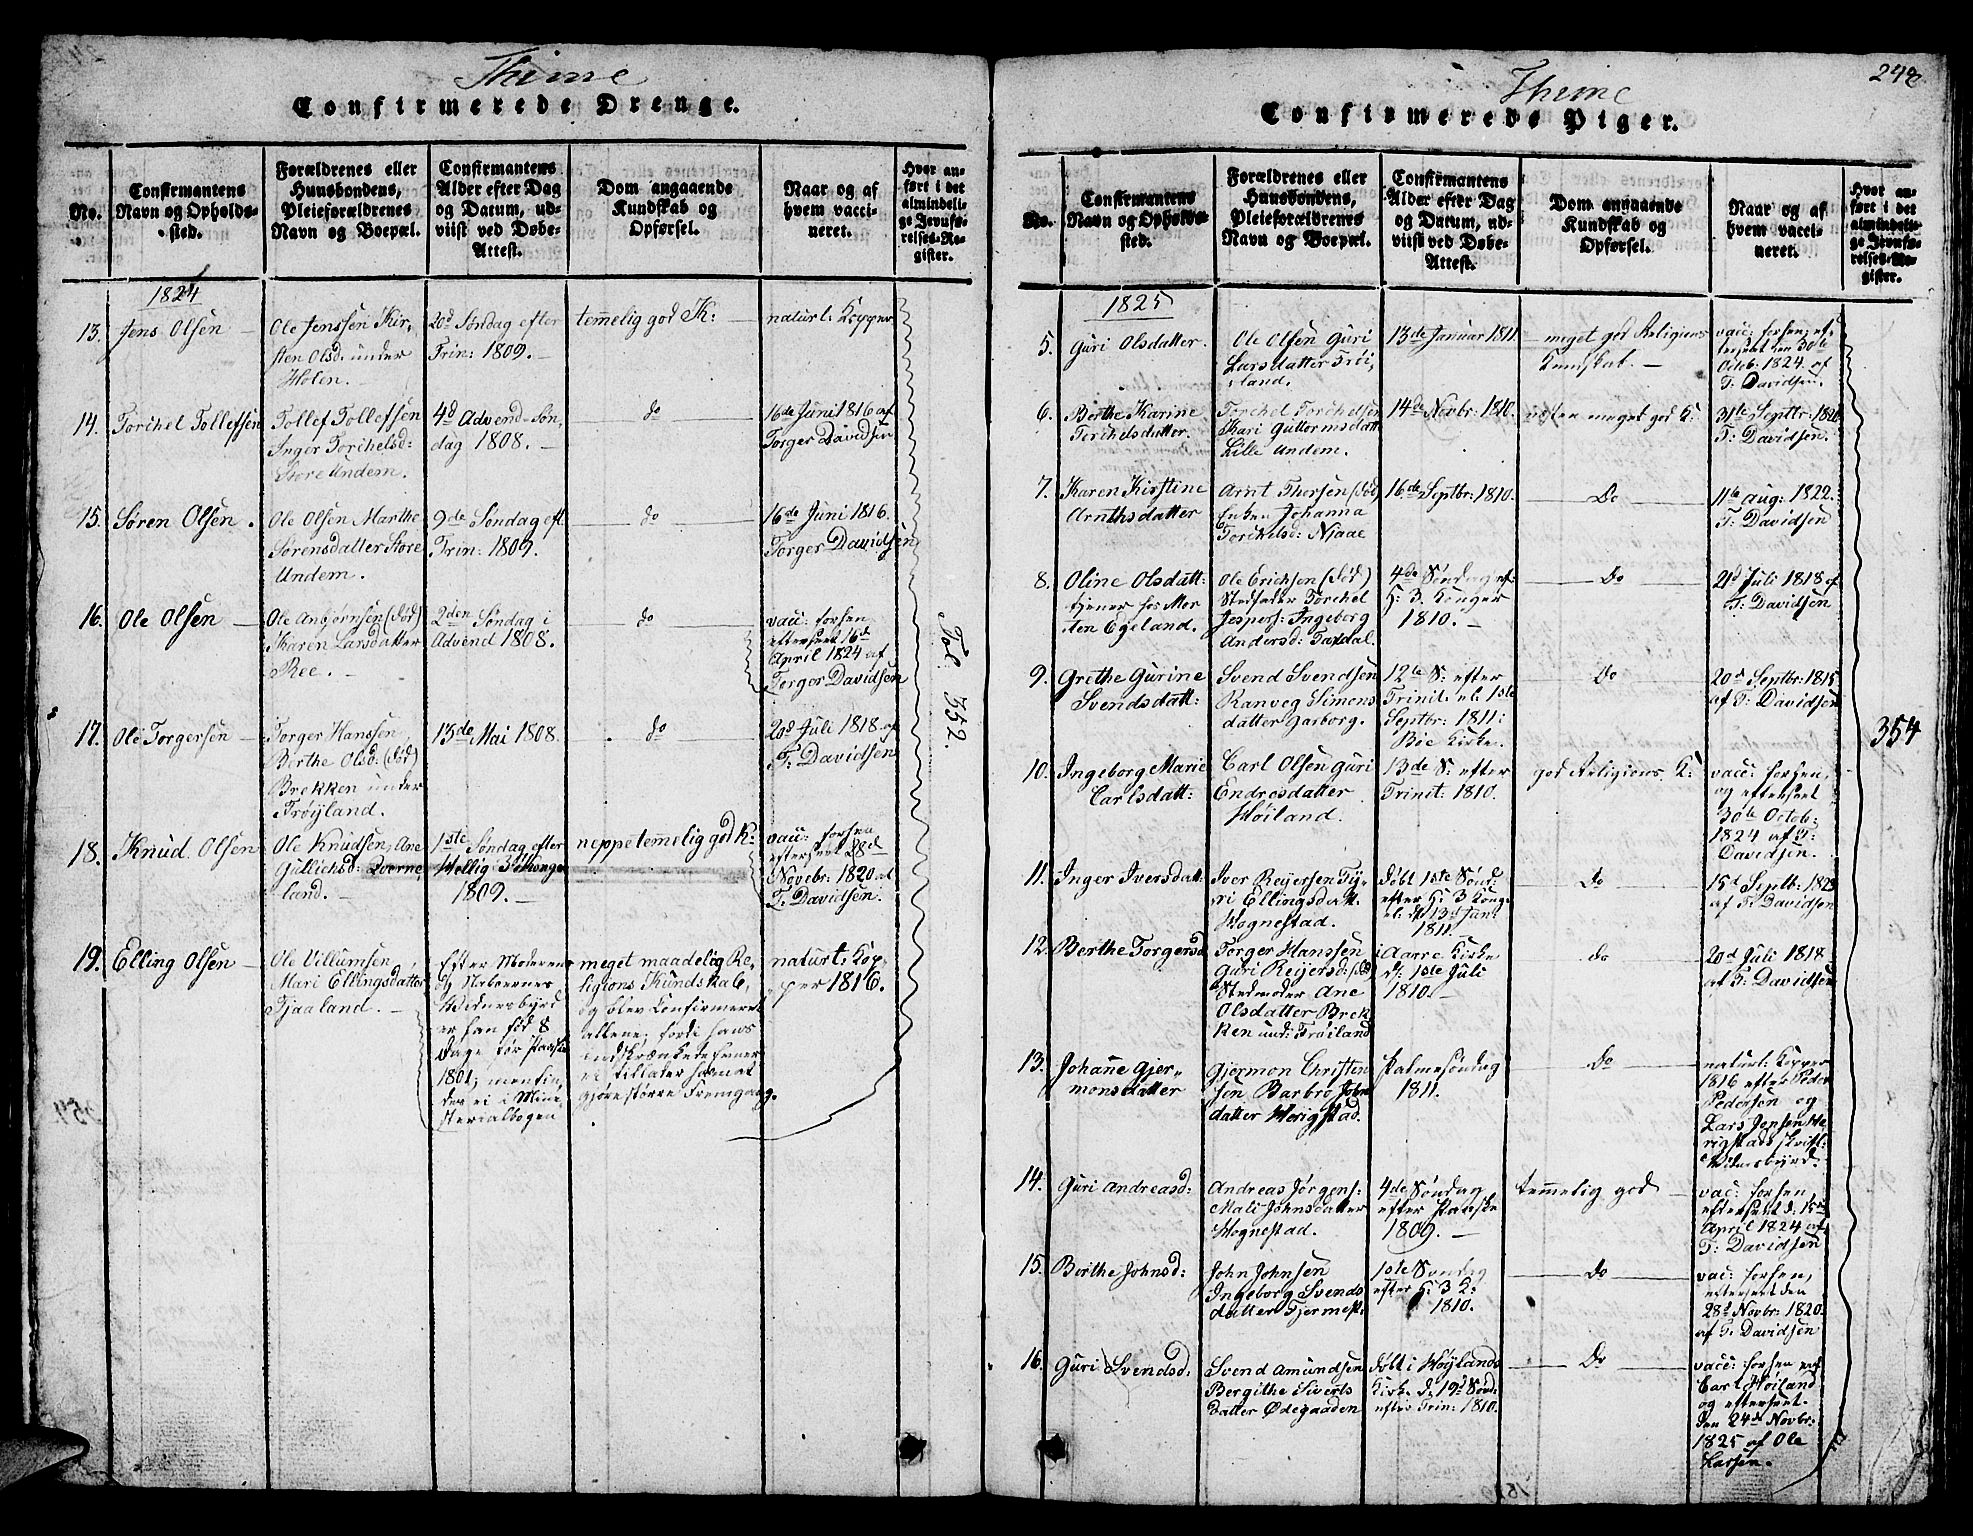 Thime
Confirmerede Drenge.
No.
Confirmantens
Navn og Opholds-
sted.
Forældrenes eller
Huusbondens,
Pleieforældrenes
Navn og Boepæl.
Confirmantens
Alder efter Dag
og Datum, ud-
viist ved Døbe-
Attest.
Dom angaaende
Kundskab og
Opførsel.
Naar og af
hvem vacci-
neret.
Hvor an-
ført i det
almindeli-
ge Jevnfø-
relses-Re-
gister.
1824
13. Jens Olsen
Ole Jenssen Kir-
sten Olsd: under
Holen.
20d Søndag efter
Trin: 1809.
temelig god K:
naturl: Kopper
14. Torchel Tollefsen
Tollef Tollefsen
Inger Torchelsd:
Store Undem.
4d Advend-Søn,
dag 1808.
do
16de Juni 1816 af
Torger Davidsen
15. Sören Olsen.
Ole Olsen Marthe
Sørensdatter Store
Undem.
9de Søndag eft
Trin: 1809.
do
16de Juni 1816.
Torger Davidsen
16. Ole Olsen
Ole Anbjørnsen (død)
Karen Larsdatter
Ree.
2den Søndag i
Advend 1808.
do
vacc: forhen
efterseet 16d
April 1824 af
Torger Davidsen
17. Ole Torgersen
Torger Hanssen,
Berthe Olsd: (død)
Brekken under
Trøyland.
13de Mai 1808.
do
20d Juli 1818 af
T: Davidsen
18. Knud Olsen
Ole Knudsen, Ane
Gullichsd: Qverne,
land.
1ste Søndag efter
Hellig 3 Konger
1809.
neppe temelig god K:
vacc: forhen
efterseet 28d
Novebr: 1820 af
T: Davidsen.
19. Elling Olsen
Ole Villumsen,
Mari Ellingsdatter
Tjaaland.
Efter Moderens
og Naboernes
Vidnesbyrd
er han fød 8
Dage før Paaske
1801; men fin,
des ei i Mini,
sterialbogen
meget maadelig Re-
ligions Kundskab,
og blev Confirmeret
allene, fordi hans
indskrænkede Evner
ei tillader ham at
gjøre større Fremgang.
naturl: Kop-
per 1816.
Fol. 352.
248
Thime
Confirmerede Piger.
No.
Confirmantens
Navn og Opholds-
sted.
Forældrenes eller
Huusbondens,
Pleieforældrenes
Navn og Boepæl.
Confirmantens
Alder efter Dag
og Datum, ud-
viist ved Døbe-
Attest.
Dom angaaende
Kundskab og
Opførsel.
Naar og af
hvem vacci-
neret.
Hvor an-
ført i det
almindeli-
ge Jevnfø-
relses-Re-
gister.
1825
5. Guri Olsdatter.
Ole Olsen Guri
Larsdatter Trøi,
land.
13de Januar 1811
meget god Religions
Kundskab.
vacc: forhen, ef-
terseet den 30te
Octob. 1824 af
T: Davidsen.
6. Berthe Karine
Torchelsdatter.
Torchel Torchelsen
Kari Guttormsdatt
Lille Undem.
14de Novbr: 1810.
næsten meget god K:
31te Septbr: 1820
T: Davidsen.
7. Karen Kirstine
Arnthsdatter
Arnt Thorsen (død)
Enken Johanna
Torchelsd: Njaae
16de Septbr: 1810.
Do
11te aug: 1822.
T: Davidsen
8. Oline Olsdatt:
tjener hos Mor
ten Egeland.
Ole Erichsen (død)
Stedfader Torchel
Jespers: Ingeborg
Andersd: Taxdal.
4de Søndag ef:
H: 3. Konger
1810.
Do
21d Juli 1818 af
T: Davidsen
9. Grethe Gurine
Svendsdatt:
Svend Svendsen
Ranveg Simons
datter Garborg.
12te S: efter
Trinit: el: 1ste
Septbr: 1811 i
Bøe Kirke.
Do
20d Septbr: 1815
af T: Davidsen
10. Ingeborg Marie
Carlsdatt:
Carl Olsen Guri
Endresdatter
Høiland.
13de S: efter
Trinit: 1810.
god Religions K:
vacc: forhen,
og efterseet
30te Octob:
1824 af T:
Davidsen.
11. Inger Iversdatt:
Iver Reijersen Gy,
ri Ellingsdatt:
Hognestad.
døbt 1ste Sønd:
efter H: 3 Kong
el: d: 13d Jan:
1811.
Do
15d Septb: 1823
af T: Davidsen
12. Berthe Torgersd
Torger Hanssen
Guri Reijersd: (død)
Stedmoder Ane
Olsdatter Brek
ken und: Trøiland
i Aarre Kirke
d: 1ste Juli
1810.
do
20d Juli 1818
af T: Davidsen
13. Johane Gjer-
monsdatter
Gjermon Christen
sen Barbro John
datter Herigstad.
Palmesøndag
1811.
Do
naturl: Kopper
1816 efter Peder
Pedersen og
Lars Jensen He,
rigstads skriftl:
Vidnesbyrd.
14. Guri Andreasd:
Andreas Jørgens:
Mali Johnsdatter
Hognestad.
4de Søndag
efter Paaske
1809.
temelig god
vac: forhen
efterseet d: 15de
April 1824 af
T: Davidsen
15. Berthe Johnsd:
John Johnsen
Ingeborg Svends
datter Tjermest:
1ste Søndag
efter H: 3 K:
1810.
Do
vac: forhen,
efterseet den
28d Novbr: 1820.
af T: Davidsen
16. Guri Svendsd:
Svend Amundsen
Bergithe Siverts
datter Ødegaarden
døbt i Høylands
Kirke d: 19d Sønd:
efter Trin: 1810.
Do
vacc: forhen ved
Carl Høiland
og efterseet
den 24de Novbr:
1825 af Ole
Larsen.
354